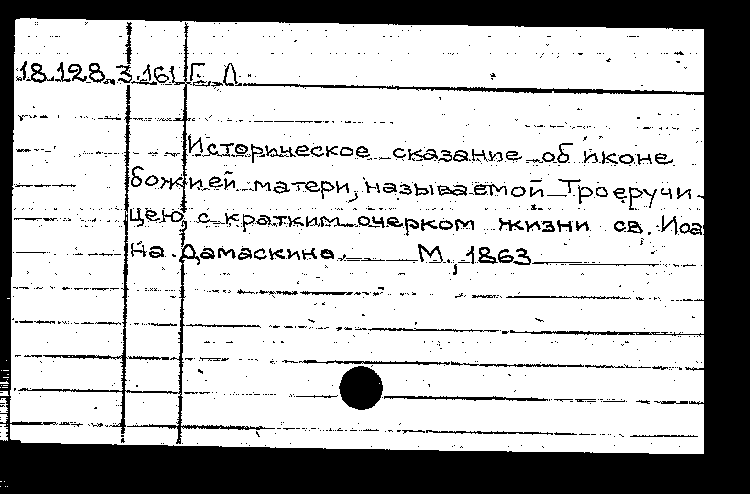 18.128.3.161 Г. Л.
Историческое сказание об иконе
божией матери, называемой Троеручи-
цею, с кратким очерком жизни св. Иоа
на Дамаскина. М., 1863